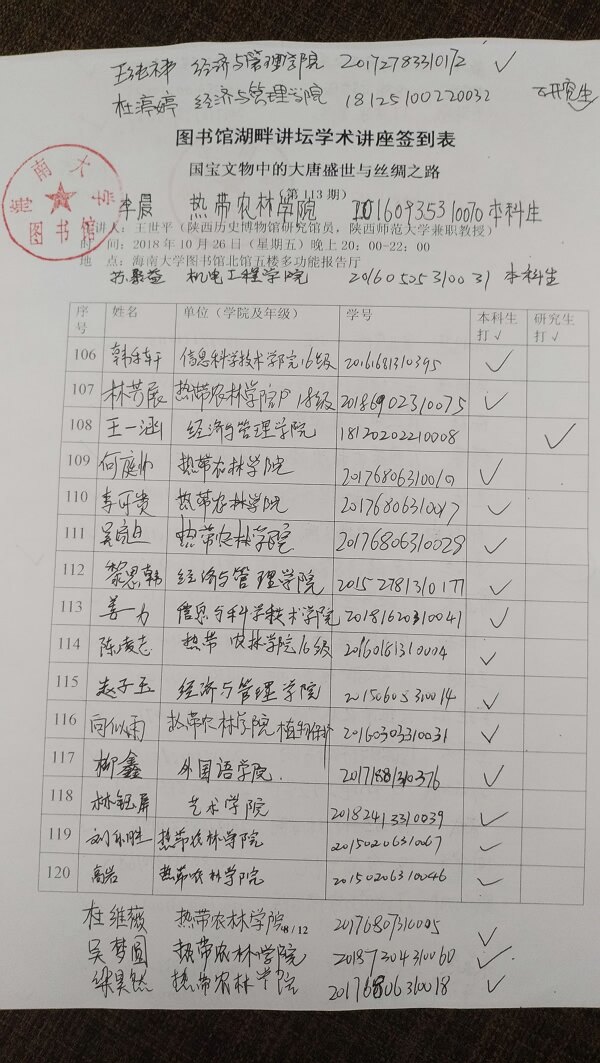 经济与管理学院 20172783310172 ✓
杜婷婷 经济与管理学院 18125100220032 研究生
图书馆湖畔讲坛学术讲座签到表
国宝文物中的大唐盛世与丝绸之路
(第 113 期)
海南大学
图书馆
李晨 热带农林学院 20160935310070 本科生
讲人：王世平（陕西历史博物馆研究馆员，陕西师范大学兼职教授）
时 间：2018 年 10 月 26 日（星期五）晚上 20：00-22：00
地 点：海南大学图书馆北馆五楼多功能报告厅
机电工程学院 20160505310031 本科生
序号 姓名 单位（学院及年级） 学号 本科生打√ 研究生打√
106 信息科学技术学院16级 20161681310395 ✓
107 林芳展 热带农林学院 18级 20186902310075 ✓
108 王一涵 经济与管理学院 18120202210008 ✓
109 何庭帅 热带农林学院 ✓
110 李可贵 热带农林学院 20176806310017 ✓
111 热带农林学院 20176806310028 ✓
112 黎思韩 经济与管理学院 20152781310177 ✓
113 姜一力 信息与科学技术学院 20181620310041 ✓
114 陈凌志 热带农林学院16级 20160181310004 ✓
115 赵子玉 经济与管理学院 20150605310014 ✓
116 向似雨 热带农林学院植物保护 20160303310031 ✓
117 柳鑫 外国语学院. 20171881310376 ✓
118 林钰屏 艺术学院 20182413310039 ✓
119 热带农林学院 20150206310067 ✓
120 高岩 热带农林学院 20150206310046 ✓
8 / 12
杜维薇 热带农林学院 20176807310005 ✓
吴梦圆 热带农林学院 20187304310060 ✓
梁昊然 热带农林学院 20176806310018 ✓